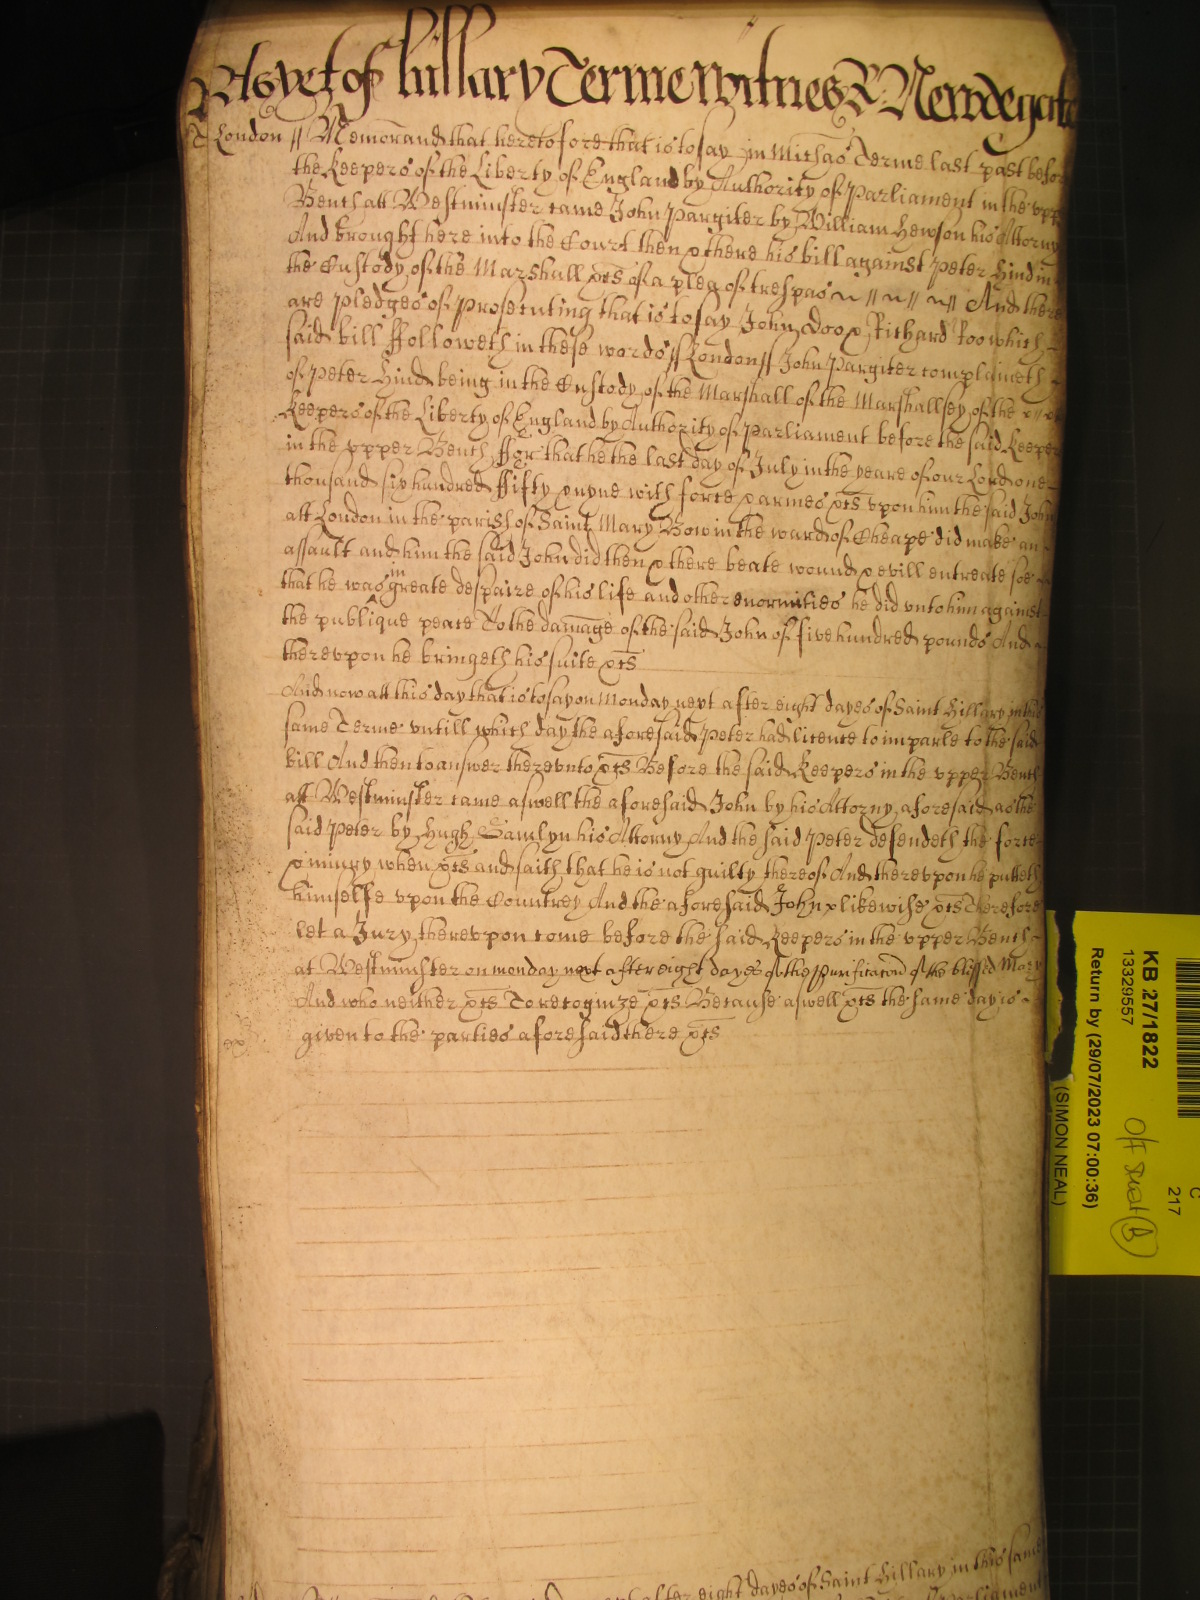 As yet of hillary Terme witnes R Newdegate
London // Memorand that heretofore that is to say in Michas Terme last past befor
the Keepers of the Liberty of England by Authority of Parliament in the upp
Bench att Westminster came John Pargiter by William Hewson his Attorny
And brought here into the Court then & there his bill against Peter Hind in
the Custody of the Marshall &ts of a plea of trespas // // // And there
are pledges of Prosecuting that is to say John Doo & Richard Roo which
said bill ffolloweth in these words // London // John Pargiter complaineth
of Peter Hind being in the Custody of the Marshall of the Marshallsey of the
Keepers of the Liberty of England by Authority of Parliament before the said Keeper
in the vpper Bench ffor that he the last day of July in the yeare of our Lord one
thousand six hundred ffifty & nyne with force & armes &ts vpon him the said John
att London in the parish of Saint Mary Bow in the ward of Cheape did make an
assault and him the said John did then & there beate wound & evill entreate soe
that he was in greate despaire of his life and other enormities he did vnto him against
the publique peace To the damage of the said John of five hundred pounds And
therevpon he bringeth his suite &ts
And now att this day that is to say on Monday next after eight dayes of Saint Hillary in this
same Terme vntill which day the aforesaid Peter had licence to imparle to the said
bill And then to answer therevnto &ts Before the said Keepers in the vpper Bench
att Westminster came aswell the aforesaid John by his Attorny aforesaid as the
said Peter by Hugh Samlyn his Attorny And the said Peter defendeth the force
& iniury when &ts and saith that he is not guilty thereof And therevpon he putteth
himselfe vpon the Countrey And the aforesaid John likewise &ts Therefore
let a Jury therevpon come before the said Keepers in the vpper Bench
at Westminster on monday next after eight dayes of the Purificacon of the blessed Mary
And who neither &ts To recognize &ts Because aswell &ts the same day is
given to the parties aforesaid there &ts
after eight dayes of Saint Hillary in this same
Parliament
KB 27/1822
13329557
Return by (29/07/2023 07:00:36)
(SIMON NEAL)
C
217
B